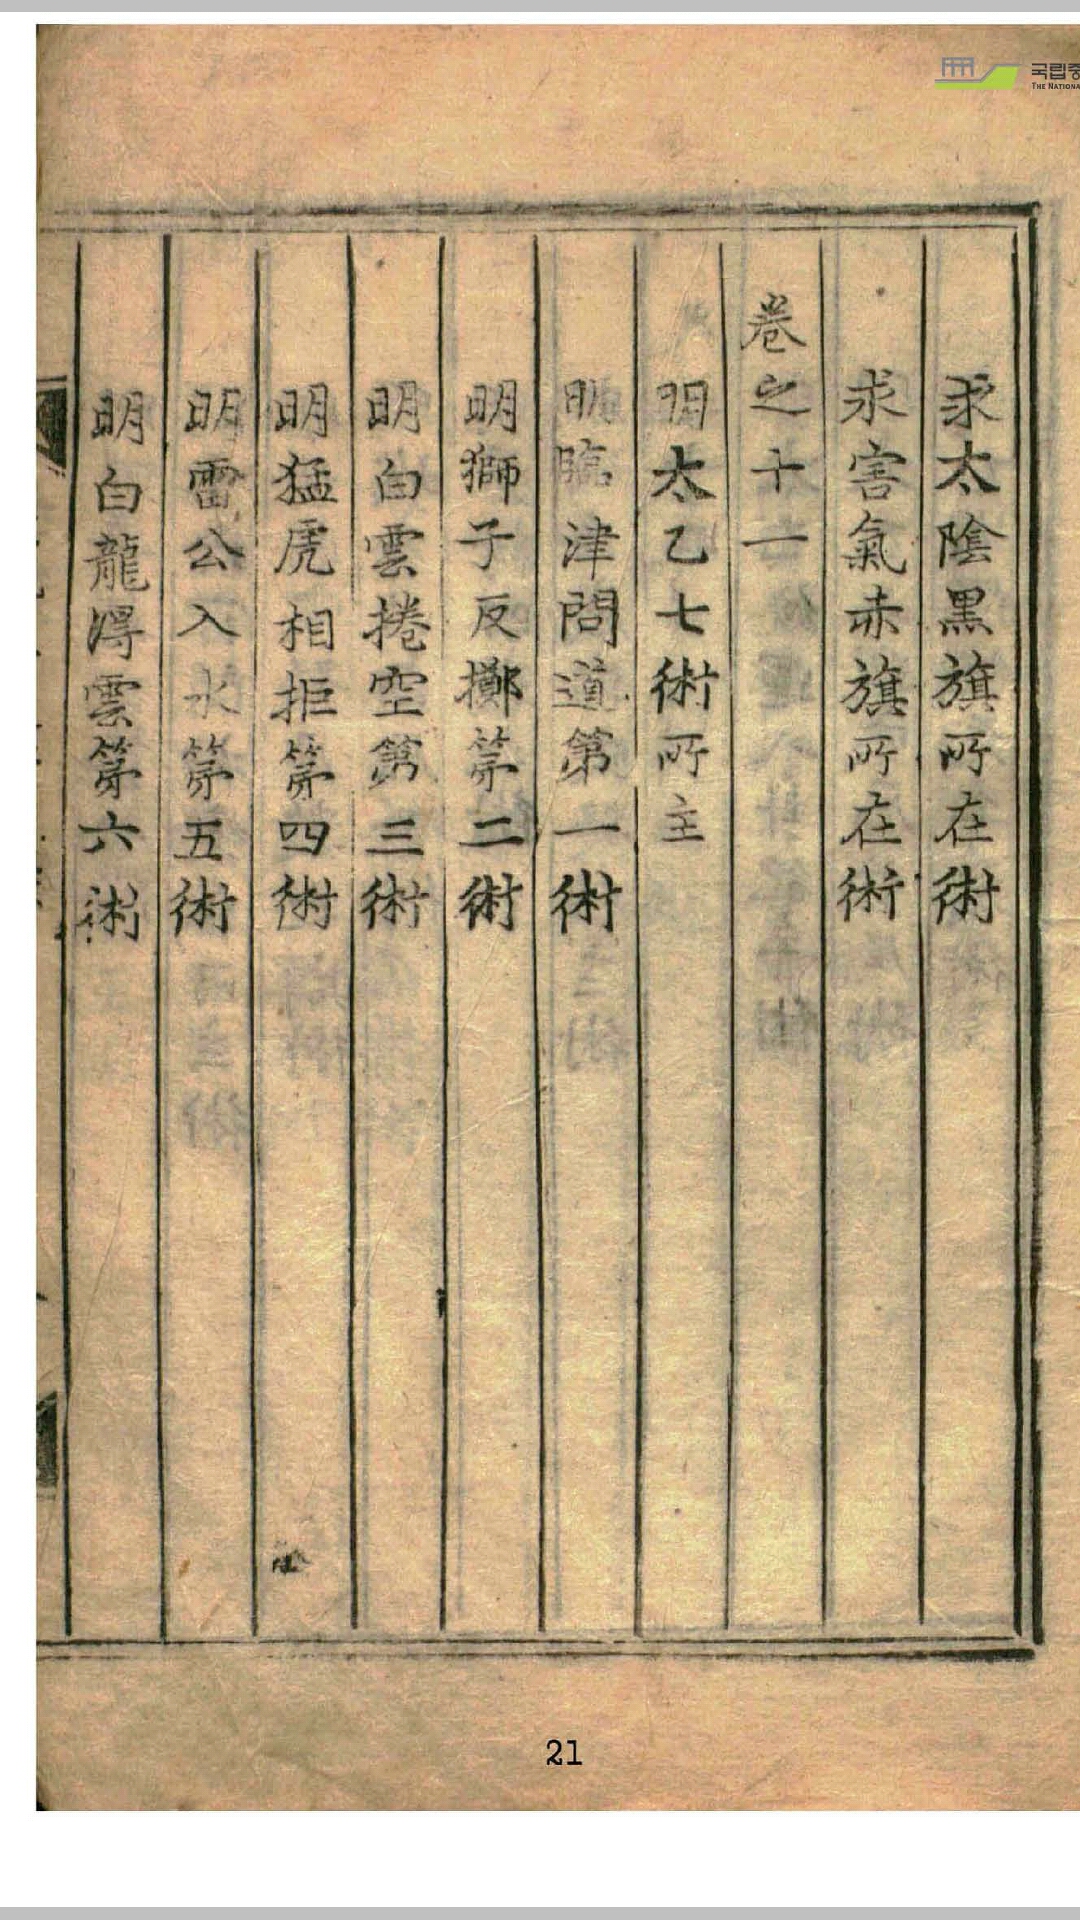 국립중
THE NATIONA
求太陰黑旗所在術
求害氣赤旗所在術
卷之十一
明太乙七術所主
明臨津問道第一術
明獅子反擲第二術
明白雲捲空第三術
明猛虎相拒第四術
明雷公入水第五術
明白龍淂雲第六術
21